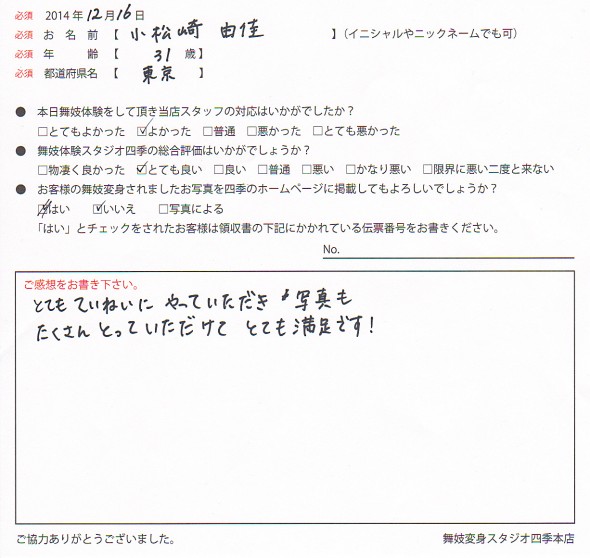 必須 2014年12月16日
必須 お名前【 小松崎 由佳 】(イニシャルやニックネームでも可)
必須 年齢【 31 歳】
必須 都道府県名【 東京 】
● 本日舞妓体験をして頂き当店スタッフの対応はいかがでしたか？
□とてもよかった ☑よかった □普通 □悪かった □とても悪かった
● 舞妓体験スタジオ四季の総合評価はいかがでしょうか？
□物凄く良かった ☑とても良い □良い □普通 □悪い □かなり悪い □限界に悪い二度と来ない
● お客様の舞妓変身されましたお写真を四季のホームページに掲載してもよろしいでしょうか？
☑はい ☑いいえ □写真による
「はい」とチェックをされたお客様は領収書の下記にかかれている伝票番号をお書きください。
No.
ご感想をお書き下さい。
とても ていねいに やっていただき 写真も
たくさん とっていただけて とても満足です！
ご協力ありがとうございました。 舞妓変身スタジオ四季本店